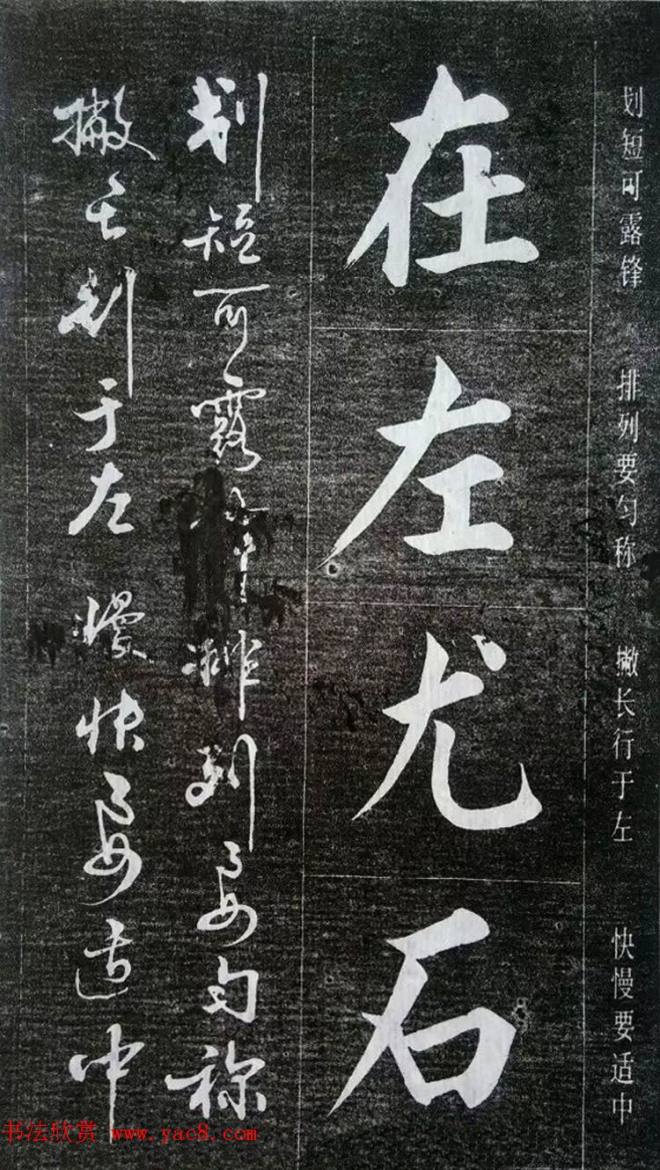 划短可露锋 排列要匀称 撇长行于左 快慢要适中
在左尤石
划短可露排列要匀称
撇长于左慢快要适中
书法欣赏 www.yac8.com